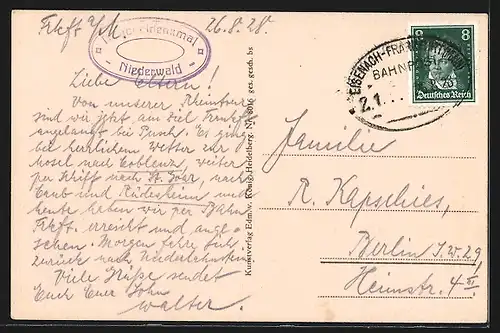 Frkft a/M 26.8.28.
Nationaldenkmal
Niederwald
Liebe Eltern!
Von unserer Rheintour
sind wir jetzt am Ziel Frankft
angelangt bei Es ging
bei herrlichem Wetter zur
Mosel nach Coblenz, weiter
per Schiff nach St. Goar, nach
Caub und Rüdesheim und
heute haben wir per Bahn
Frkft. erreicht und ange-
sehen. Morgen fahre ich
zurück nach Niederlahnstein
Viele Grüße sendet
Euch Euer Sohn
Walter.
Kunstverlag Edm. v. König, Heidelberg. Nr. ges. gesch. bs
EISENACH-FRANKFURT
BAHNPOST
8 8
Deutsches Reich
Familie
R. Kapschies,
Berlin S.W. 29
Heimstr. 4 III